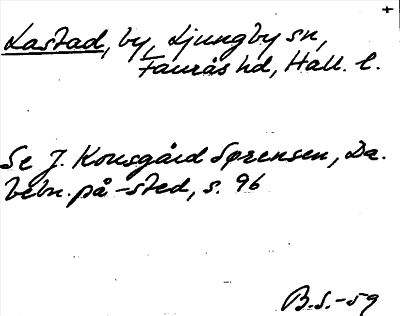 +
Lastad, by, Ljungby sn,
Faurås hd, Hall. l.
Se J. Kousgård Sørensen, Da.
bebn. på -sted, s. 96
B.S.-59